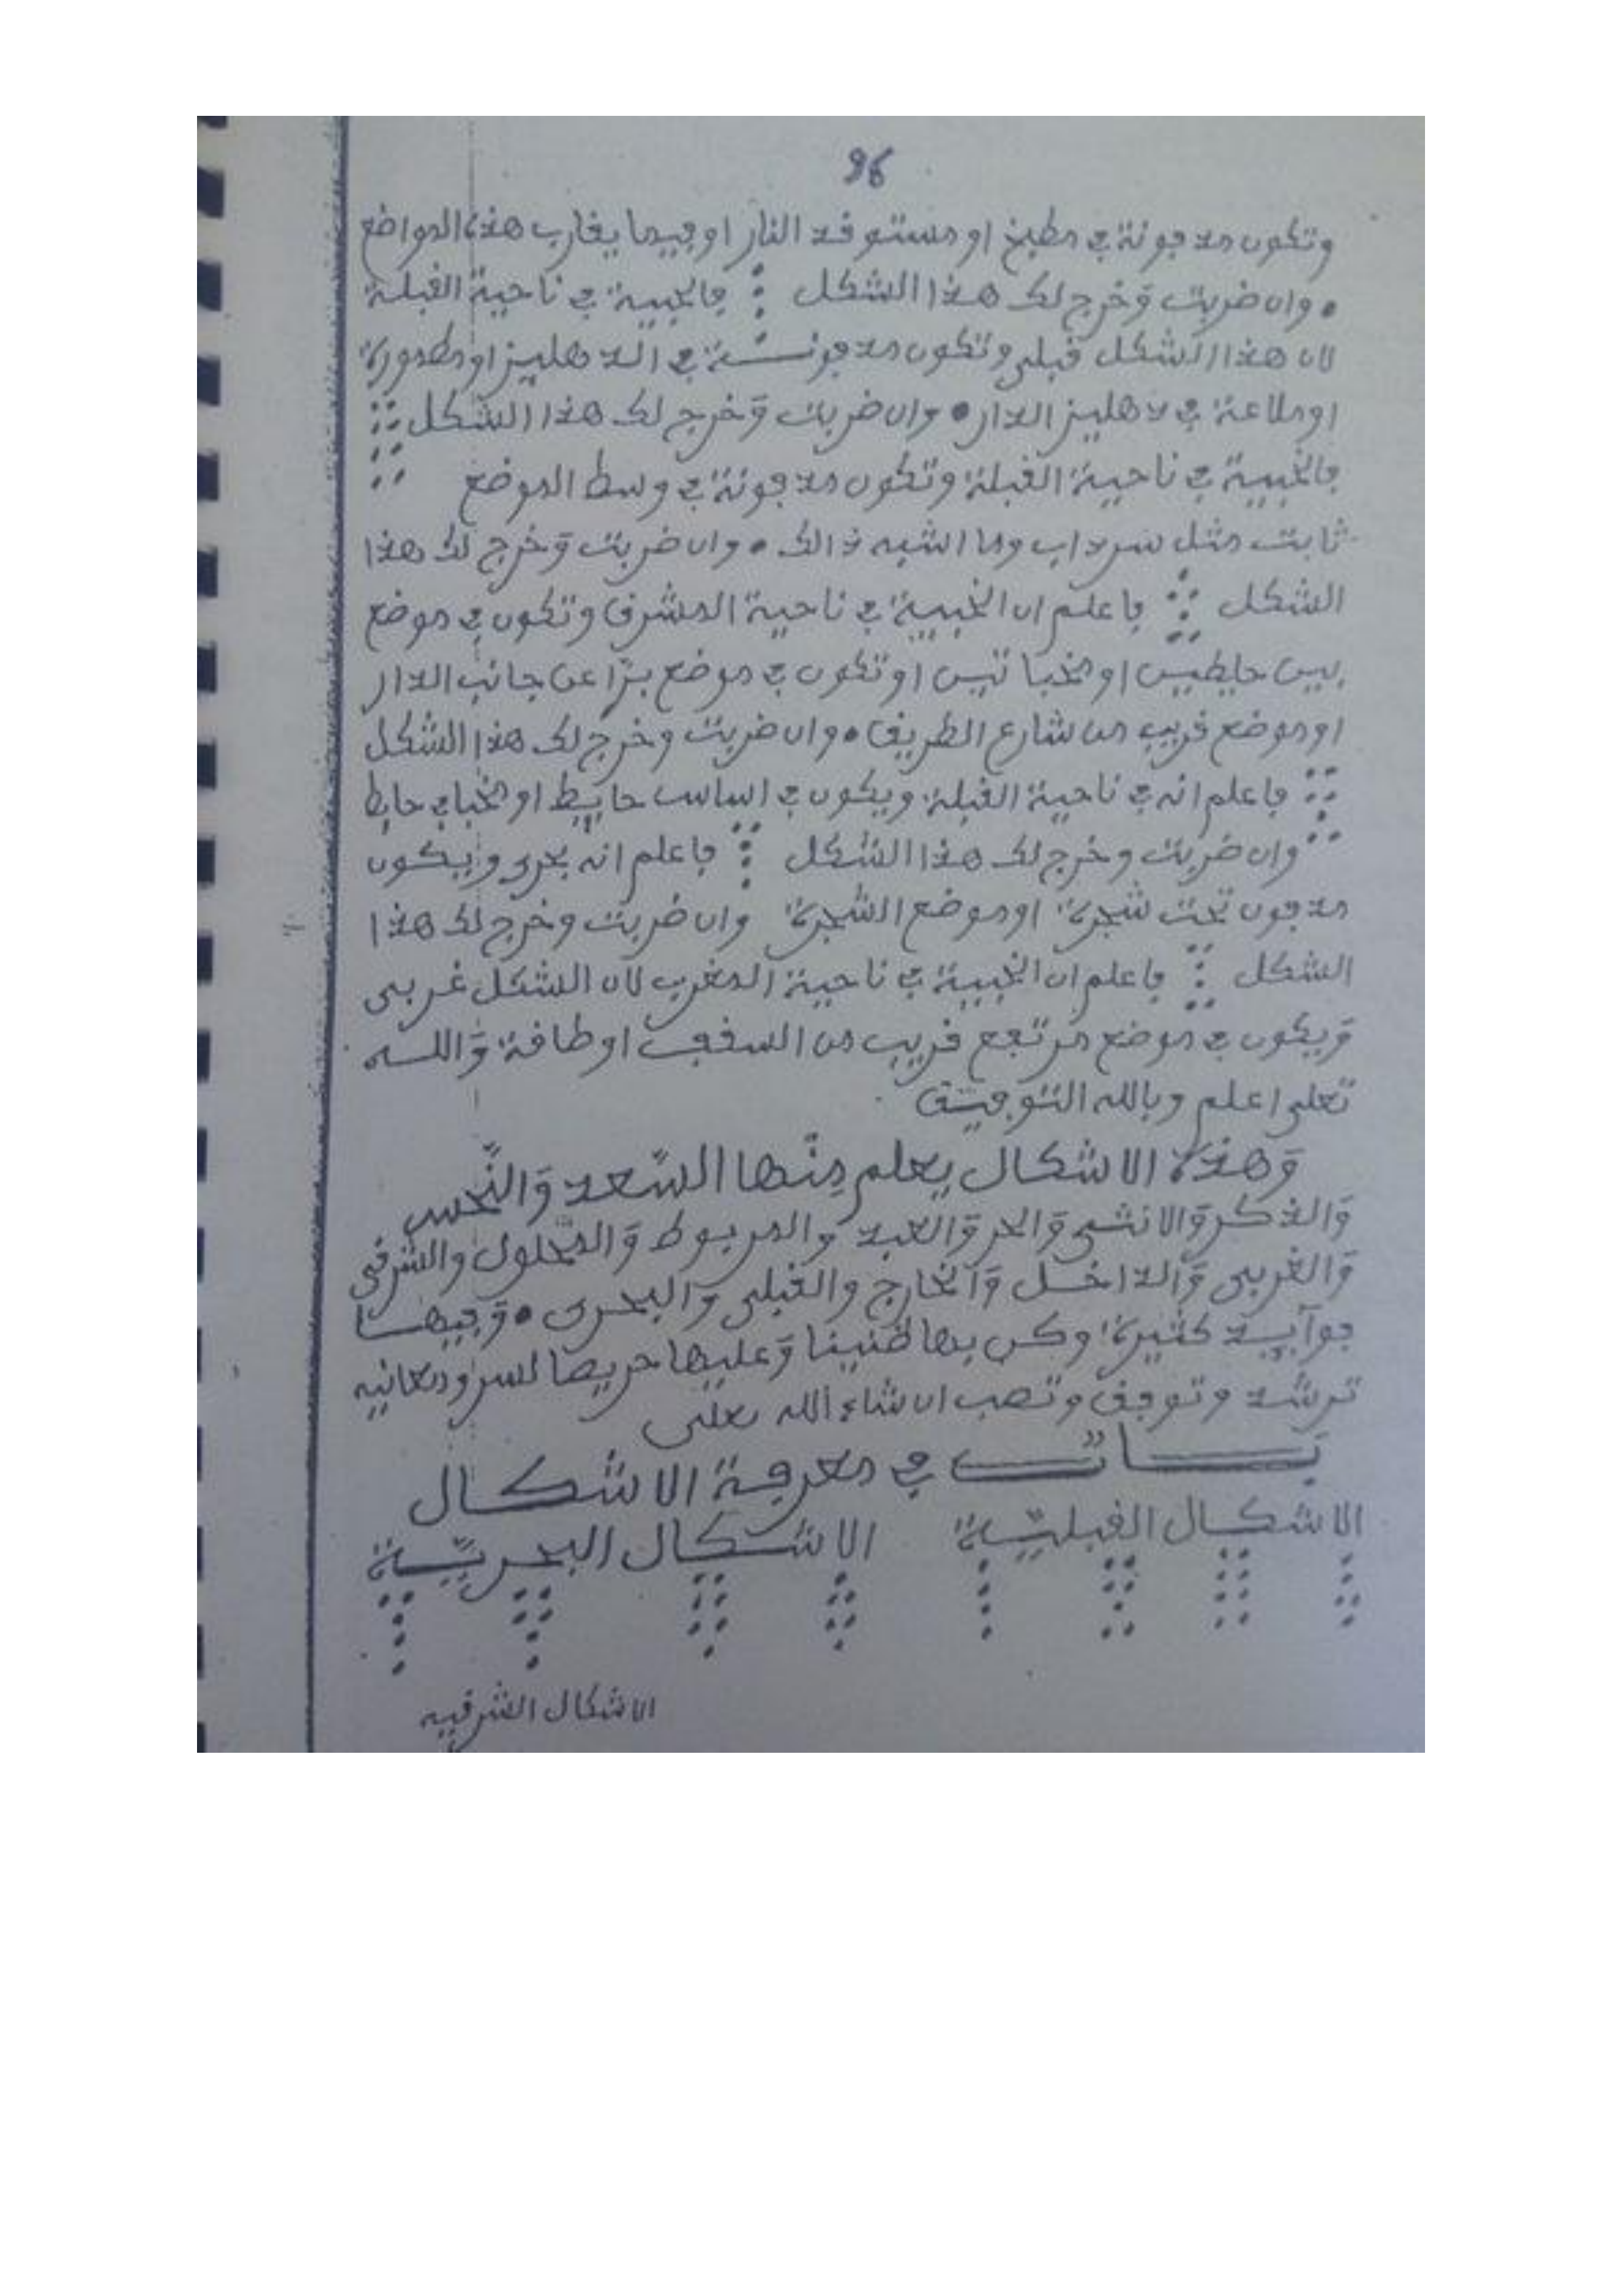 96
وتكون مدفونة في مطبخ او مستوقد النار او فيما يقارب هذه المواضع
• وان ضربت وَخرج لك هذا الشكل فالخبية في ناحية القبلة
لان هذا الشكل قبلي وتكون مدفونـــة في الدهليز او مطمورة
او ملاعة في دهليز الدار • وان ضربت وَخرج لك هذا الشكل
فالخبية في ناحية القبلة وتكون مدفونة في وسط الموضع
ثابت مثل سرداب وما اشبه ذالك • وان ضربت وَخرج لك هذا
الشكل فاعلم ان الخبية في ناحية المشرق وتكون في موضع
بين حايطين او مخباتين او تكون في موضع برّا عن جانب الدار
او موضع قريب من شارع الطريق • وان ضربت وخرج لك هذا الشكل
فاعلم انه في ناحية القبلة ويكون في اساس حايط او مخبا في حايط
وان ضربت وخرج لك هذا الشكل فاعلم انه بحري ويكون
مدفون تحت شجرة او موضع الشجرة وان ضربت وخرج لك هذا
الشكل فاعلم ان الخبية في ناحية المغرب لان الشكل غربي
وَيكون في موضع مرتفع قريب من السقف او طاقة وَاللـــه
تعلى اعلم وبالله التوفيق
وَهذه الاشكال يعلم مِنْها السّعد وَالنّحس
وَالذكر وَالانثى وَالحر وَالعبد والمربوط وَالمحلول والشرقي
وَالغربي وَالداخــل وَالخارج والقبلي وَالبحري • وَفيهــا
فوآيــد كثيرة وكن بها ظنينا وَعليها حريصا لسر ومعانيه
ترشد وتوفق وتصب ان شاء الله تعلى
بـــــاب في معرفة الاشكـــال
الاشكــال القبليّــة الاشـكـال البحريّــة
الاشكال الشرقيه